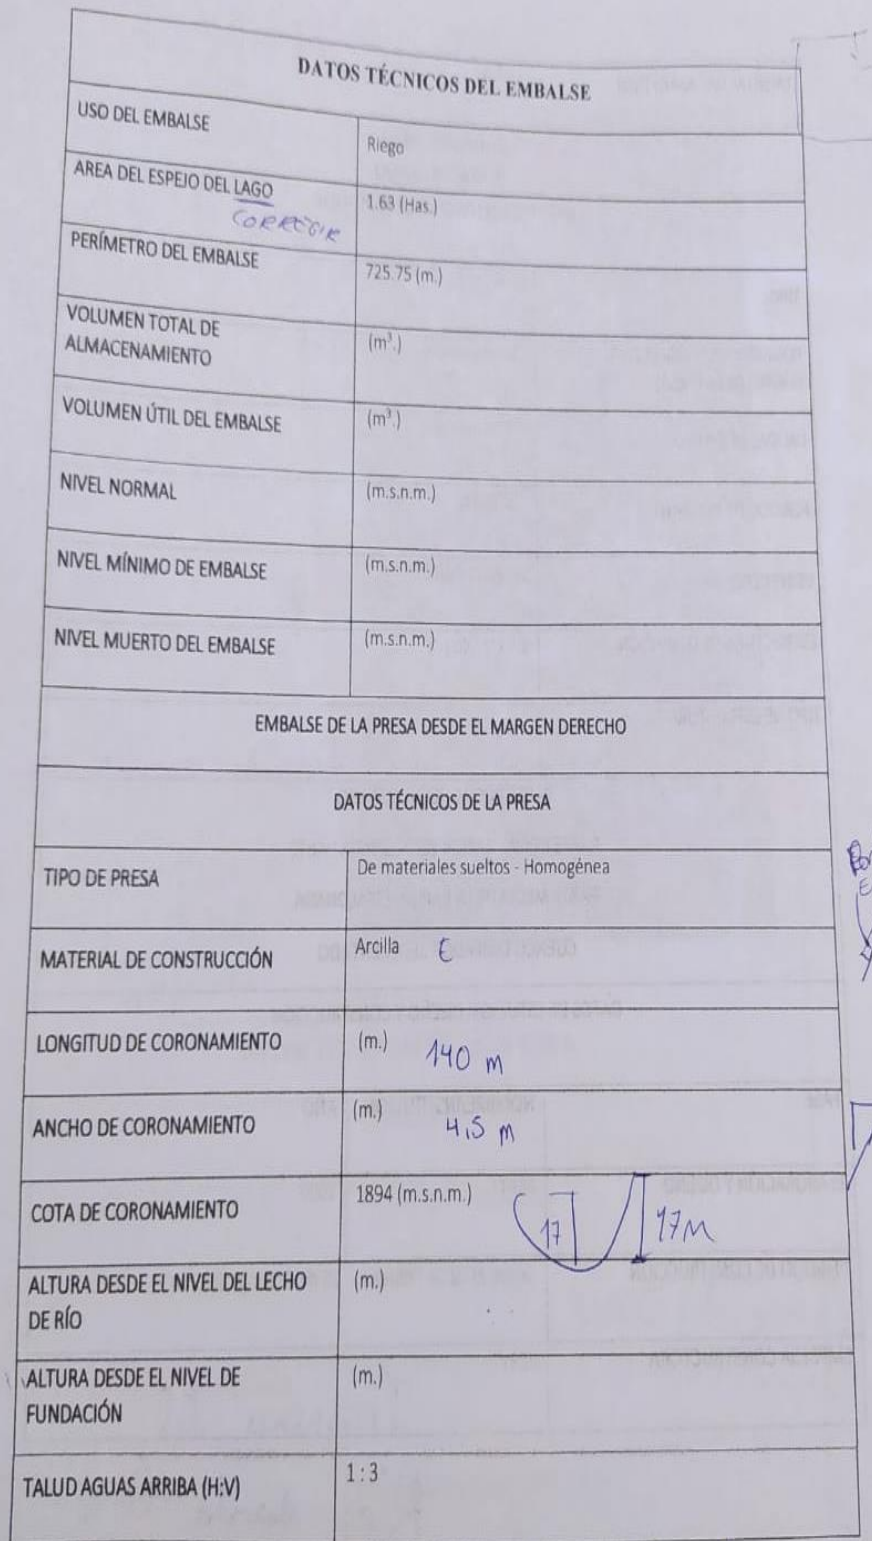 DATOS TÉCNICOS DEL EMBALSE
USO DEL EMBALSE
Riego
AREA DEL ESPEJO DEL LAGO
CORREGIR
1.63 (Has.)
PERÍMETRO DEL EMBALSE
725.75 (m.)
VOLUMEN TOTAL DE
ALMACENAMIENTO
(m³.)
VOLUMEN ÚTIL DEL EMBALSE
(m³.)
NIVEL NORMAL
(m.s.n.m.)
NIVEL MÍNIMO DE EMBALSE
(m.s.n.m.)
NIVEL MUERTO DEL EMBALSE
(m.s.n.m.)
EMBALSE DE LA PRESA DESDE EL MARGEN DERECHO
DATOS TÉCNICOS DE LA PRESA
TIPO DE PRESA
De materiales sueltos - Homogénea
MATERIAL DE CONSTRUCCIÓN
Arcilla E
LONGITUD DE CORONAMIENTO
(m.) 140 m
ANCHO DE CORONAMIENTO
(m.) 4,5 m
COTA DE CORONAMIENTO
1894 (m.s.n.m.)
17 17M
ALTURA DESDE EL NIVEL DEL LECHO
DE RÍO
(m.)
ALTURA DESDE EL NIVEL DE
FUNDACIÓN
(m.)
TALUD AGUAS ARRIBA (H:V)
1 : 3